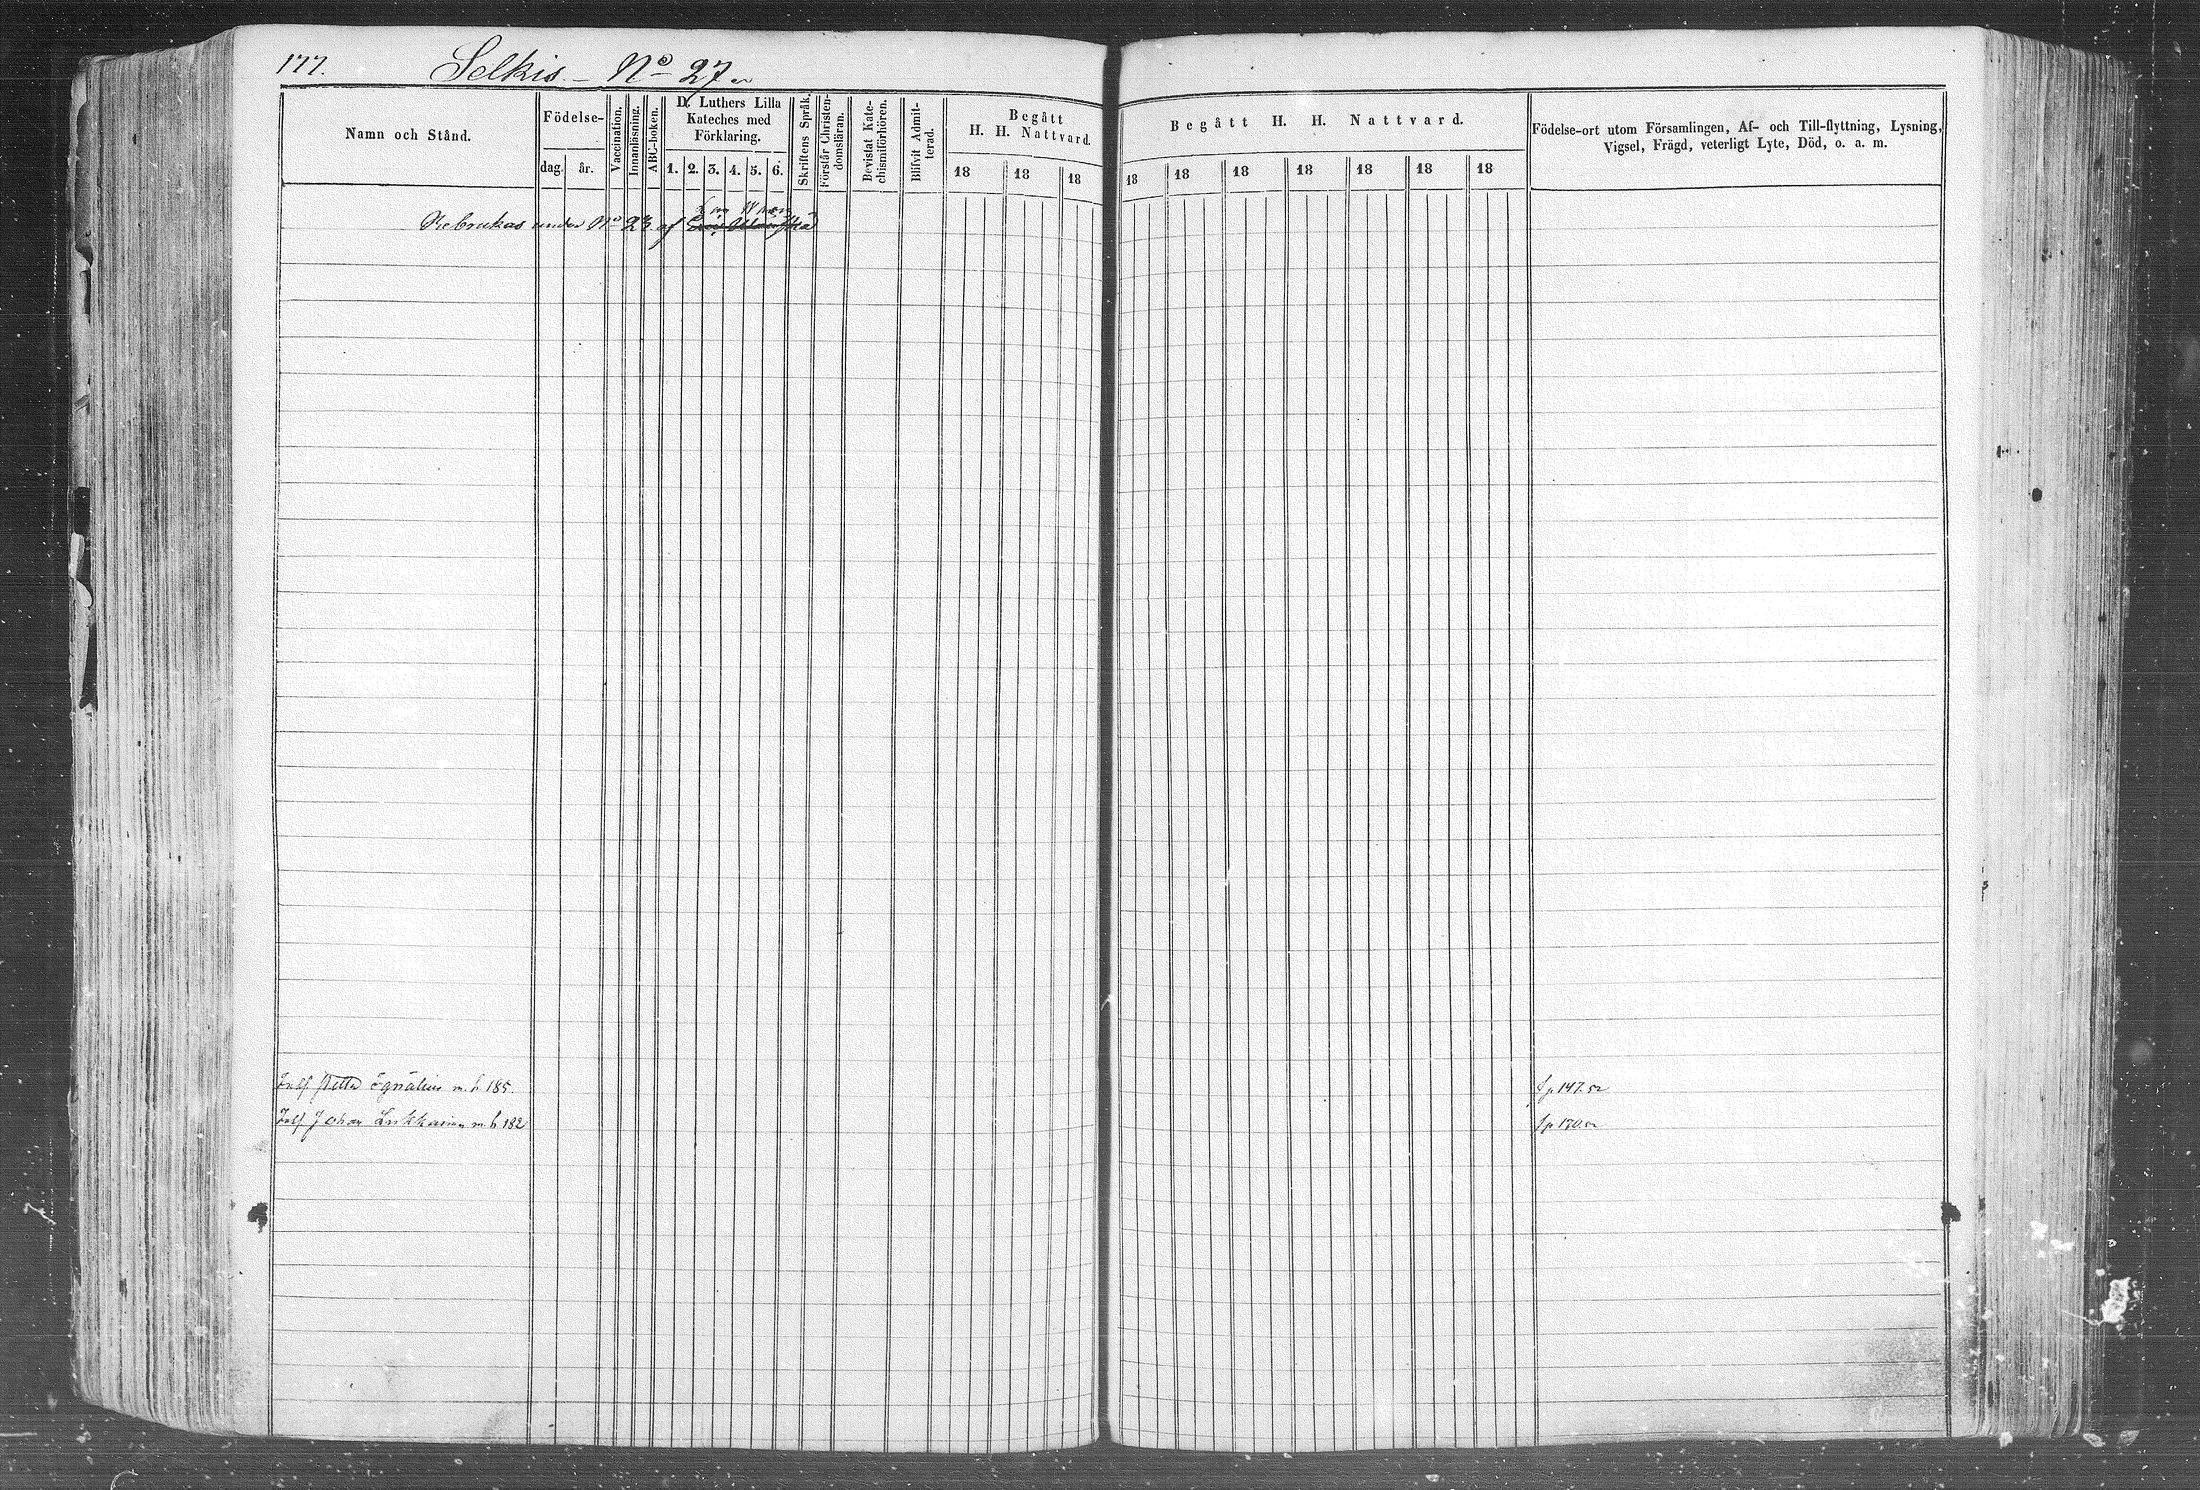 177. Selkis. – No 27
Namn och Stånd.
Födelse-
dag. år.
Vaccination.
Innanläsning.
ABC-boken.
Dr. Luthers Lilla
Kateches med
Förklaring.
1. 2. 3. 4. 5. 6.
Skriftens Språk.
Förstår Christen-
domsläran.
Bevistat Kate-
chismiförhören.
Blifvit Admit-
terad.
Begått
H. H. Nattvard.
18 18 18
Begått H. H. Nattvard.
18 18 18 18 18 18 18
Födelse-ort utom Församlingen, Af- och Till-flyttning, Lysning,
Vigsel, Frägd, veterligt Lyte, Död, o. a. m.
under No 23 af
Ignatius m. h. 185. fr 147.52
Johan m. h. 182 fr 170.52